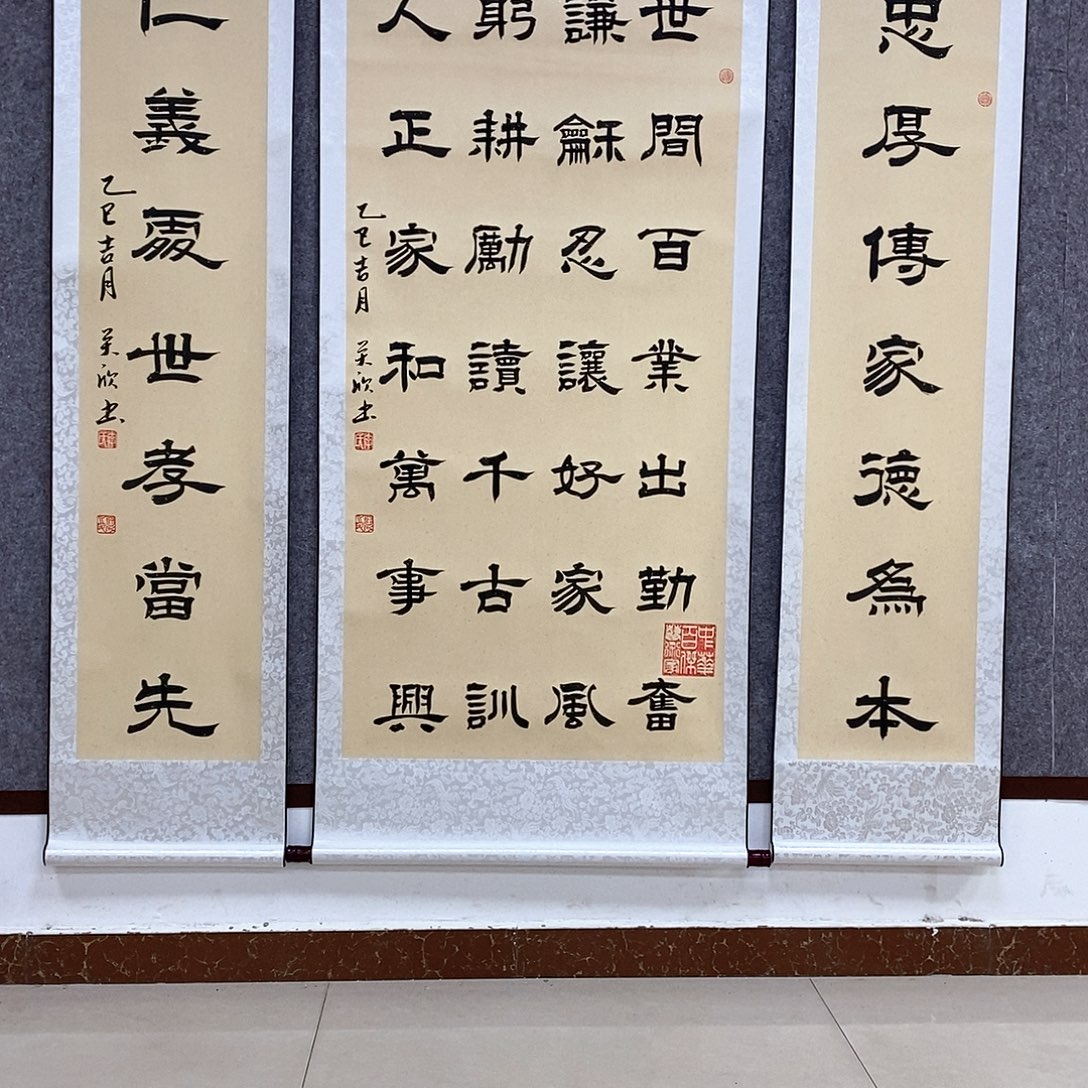 忠厚傳家德為本
世間百業出勤奮
謙龢忍讓好家風
躬耕勵讀千古訓
人正家和萬事興
乙巳吉月 欣书
中華
百傑
仁義處世孝當先
乙巳吉月 欣书